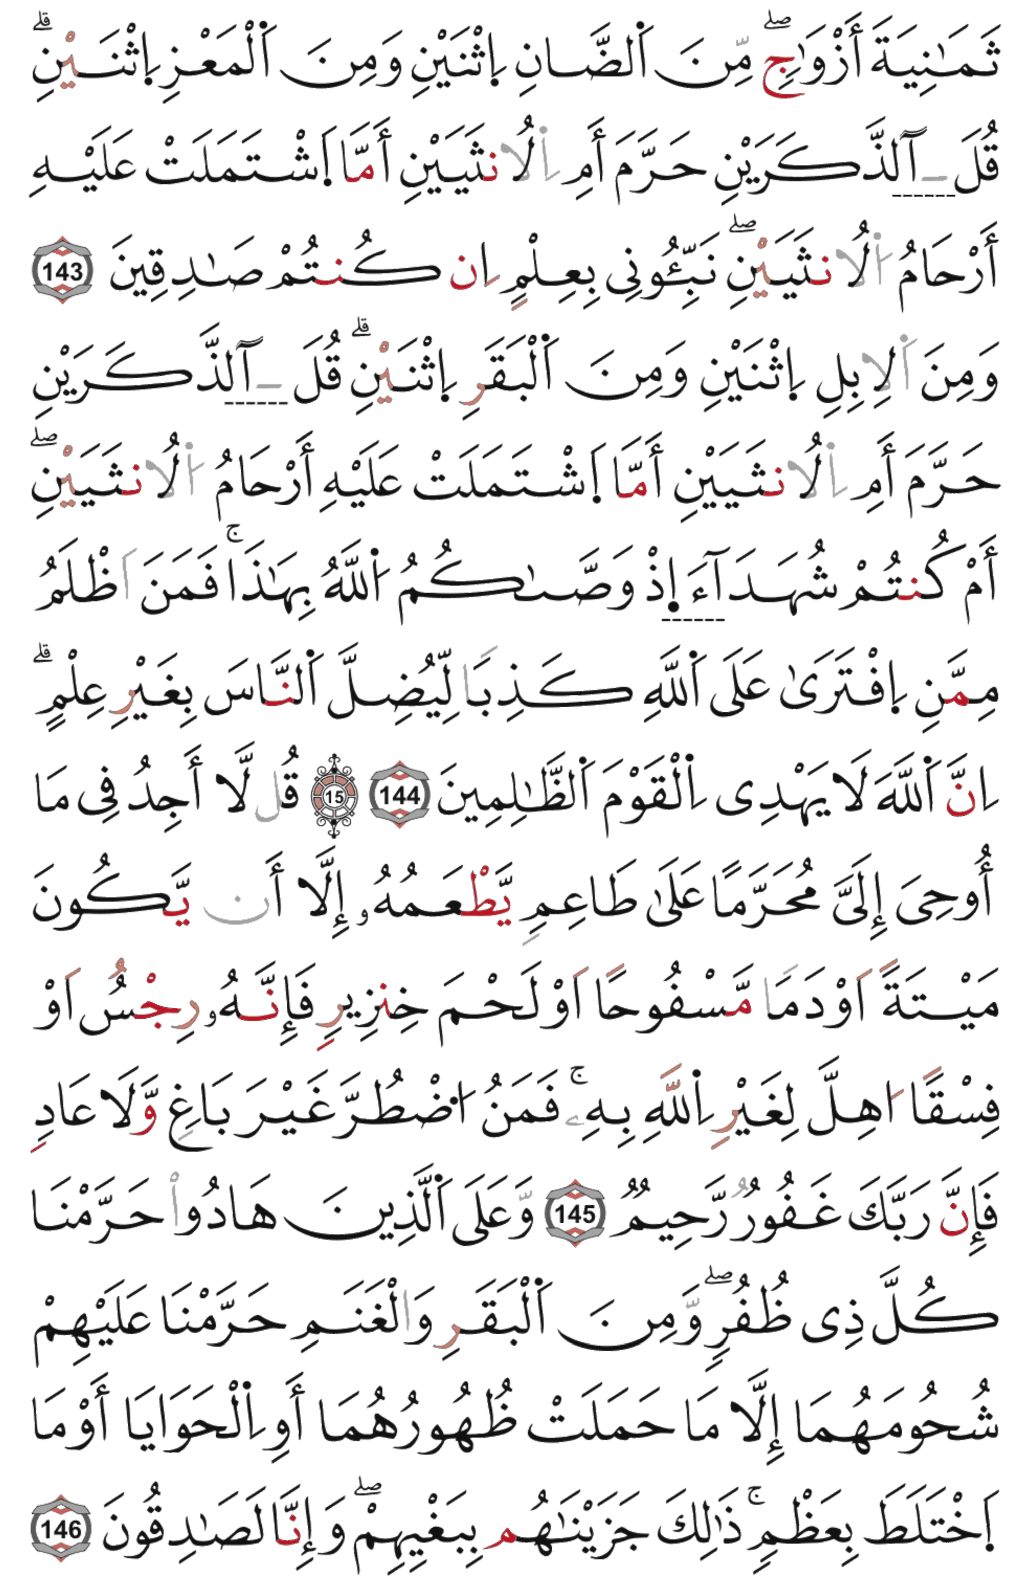 ثَمَٰنِيَةَ أَزْوَٰجٖۖ مِّنَ اَ۬لضَّانِ اِ۪ثْنَيْنِ وَمِنَ اَ۬لْمَعْزِ اِ۪ثْنَيْنِۖ
قُلَ ـآلذَّكَرَيْنِ حَرَّمَ أَمِ اِ۬لُانثَيَيْنِ أَمَّا اَ۪شْتَمَلَتْ عَلَيْهِ
أَرْحَامُ اُ۬لُانثَيَيْنِۖ نَبِّـُٔونِى بِعِلْمٍ اِن كُنتُمْ صَٰدِقِينَ 143
وَمِنَ اَ۬لِابِلِ اِ۪ثْنَيْنِ وَمِنَ اَ۬لْبَقَرِ اِ۪ثْنَيْنِۖ قُلَ ـآلذَّكَرَيْنِ
حَرَّمَ أَمِ اِ۬لُانثَيَيْنِ أَمَّا اَ۪شْتَمَلَتْ عَلَيْهِ أَرْحَامُ اُ۬لُانثَيَيْنِۖ
أَمْ كُنتُمْ شُهَدَآءَ اِ۪ذْ وَصَّىٰكُمُ اُ۬للَّهُ بِهَٰذَاۚ فَمَنَ اَظْلَمُ
مِمَّنِ اِ۪فْتَرَىٰ عَلَى اَ۬للَّهِ كَذِبًا لِّيُضِلَّ اَ۬لنَّاسَ بِغَيْرِ عِلْمٍۖ
اِنَّ اَ۬للَّهَ لَا يَهْدِى اِ۬لْقَوْمَ اَ۬لظَّٰلِمِينَ 144 15 قُل لَّا أَجِدُ فِى مَا
أُوحِىَ إِلَىَّ مُحَرَّمًا عَلَىٰ طَاعِمٖ يَّطْعَمُهُۥ إِلَّا أَن يَّكُونَ
مَيْتَةً اَوْ دَمًا مَّسْفُوحًا اَوْ لَحْمَ خِنزِيرٖ فَإِنَّهُۥ رِجْسٌ اَوْ
فِسْقًا اُهِلَّ لِغَيْرِ اِ۬للَّهِ بِهِۦۚ فَمَنُ اُ۟ضْطُرَّ غَيْرَ بَاغٖ وَّلَا عَادٖ
فَإِنَّ رَبَّكَ غَفُورٌ رَّحِيمٌ 145 وَّعَلَى اَ۬لَّذِينَ هَادُواْ حَرَّمْنَا
كُلَّ ذِى ظُفُرٖۖ وَّمِنَ اَ۬لْبَقَرِ وَالْغَنَمِ حَرَّمْنَا عَلَيْهِمْ
شُحُومَهُمَا إِلَّا مَا حَمَلَتْ ظُهُورُهُمَا أَوِ اِ۬لْحَوَايَا أَوْ مَا
اَ۪خْتَلَطَ بِعَظْمٖۚ ذَٰلِكَ جَزَيْنَٰهُم بِبَغْيِهِمْۖ وَإِنَّا لَصَٰدِقُونَ 146